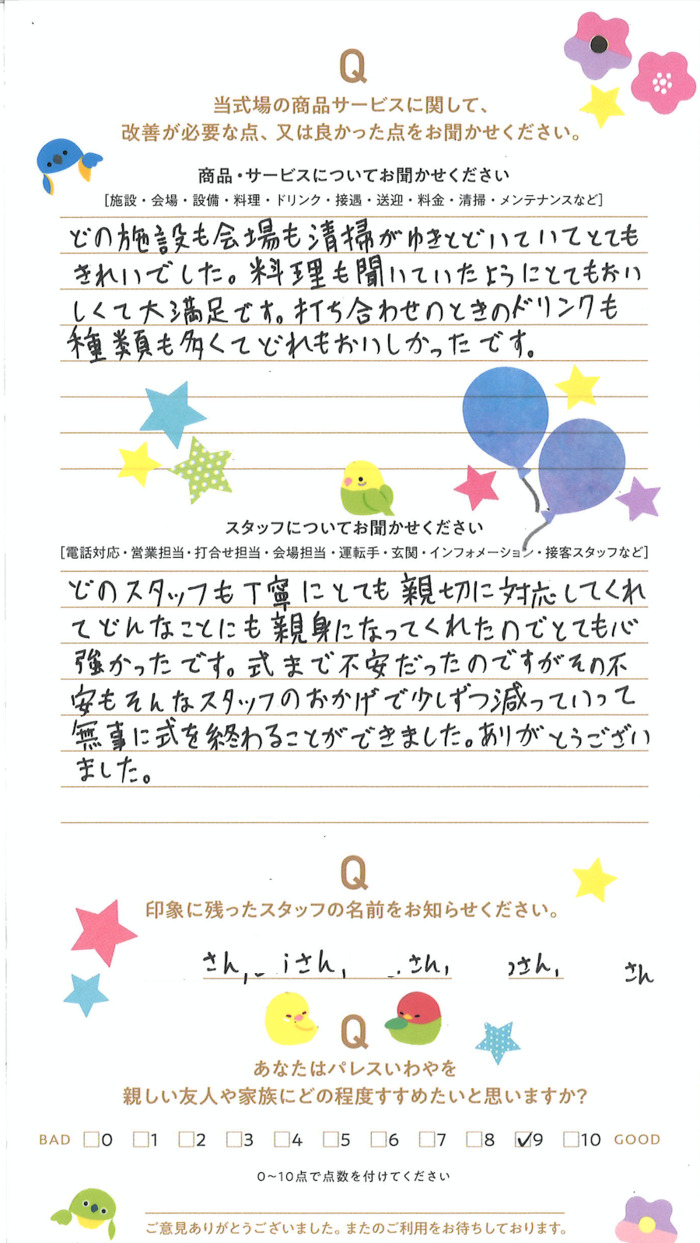 Q
当式場の商品サービスに関して、
改善が必要な点、又は良かった点をお聞かせください。
商品・サービスについてお聞かせください
[施設・会場・設備・料理・ドリンク・接遇・送迎・料金・清掃・メンテナンスなど]
どの施設も会場も清掃がゆきとどいていてとても
きれいでした。料理も聞いていたようにとてもおい
しくて大満足です。打ち合わせのときのドリンクも
種類も多くてどれもおいしかったです。
スタッフについてお聞かせください
[電話対応・営業担当・打合せ担当・会場担当・運転手・玄関・インフォメーション・接客スタッフなど]
どのスタッフも丁寧にとても親切に対応してくれ
てどんなことにも親身になってくれたのでとても心
強かったです。式まで不安だったのですがその不
安もそんなスタッフのおかげで少しずつ減っていって
無事に式を終わることができました。ありがとうござい
ました。
Q
印象に残ったスタッフの名前をお知らせください。
さん、 さん、 さん、 さん、 さん
Q
あなたはパレスいわやを
親しい友人や家族にどの程度すすめたいと思いますか?
BAD □0 □1 □2 □3 □4 □5 □6 □7 □8 ☑9 □10 GOOD
0〜10点で点数を付けてください
ご意見ありがとうございました。またのご利用をお待ちしております。